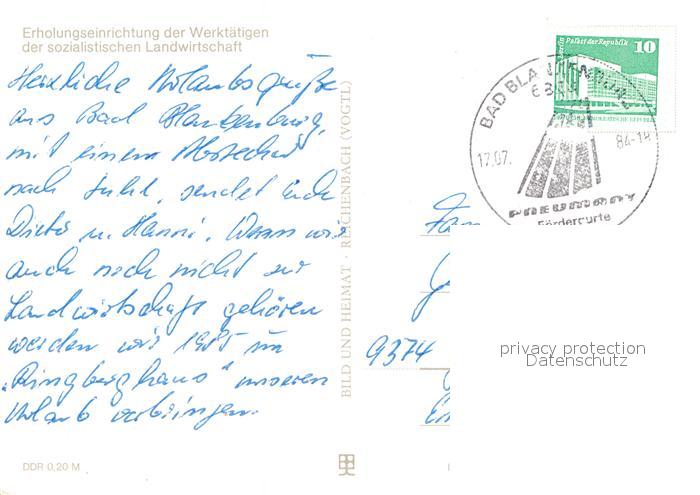 Erholungseinrichtung der Werktätigen
der sozialistischen Landwirtschaft
Herzliche Urlaubsgrüße
aus Bad Blankenburg,
mit einem Abstecher
nach Suhl, sendet Euch
Dieter u. Hanni. Wenn wir
auch noch nicht zur
Landwirtschaft gehören
werden wir 1985 im
„Ringberghaus" unseren
Urlaub verbringen.
DDR 0,20 M
BILD UND HEIMAT · REICHENBACH (VOGTL)
Palast der Republik 10
BAD BLANKENBURG
17.07. 84-18
PNEUMANT
Fördergurte
Fam
9374
privacy protection
Datenschutz